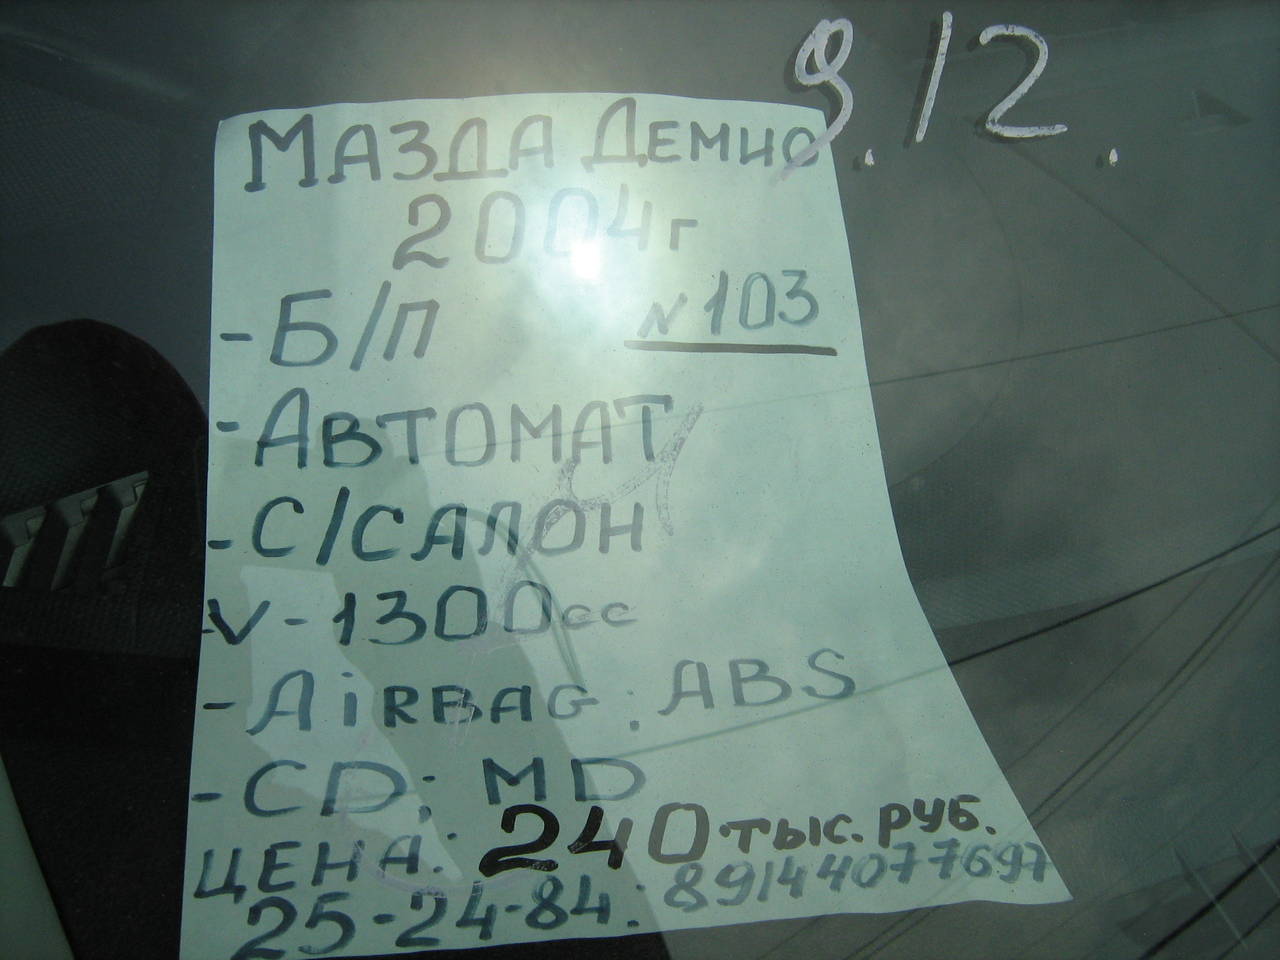 9.12.
МАЗДА ДЕМИО
2004г
- Б/П N103
- АВТОМАТ
- С/САЛОН
V-1300cc
- AiRBAG; ABS
- CD; MD
ЦЕНА: 240 тыс. руб.
25-24-84; 89144077697